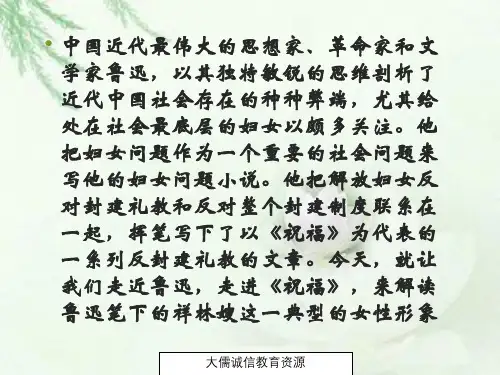 • 中国近代最伟大的思想家、革命家和文
学家鲁迅，以其独特敏锐的思维剖析了
近代中国社会存在的种种弊端，尤其给
处在社会最底层的妇女以颇多关注。他
把妇女问题作为一个重要的社会问题来
写他的妇女问题小说。他把解放妇女反
对封建礼教和反对整个封建制度联系在
一起，挥笔写下了以《祝福》为代表的
一系列反封建礼教的文章。今天，就让
我们走近鲁迅，走进《祝福》，来解读
鲁迅笔下的祥林嫂这一典型的女性形象
大儒诚信教育资源